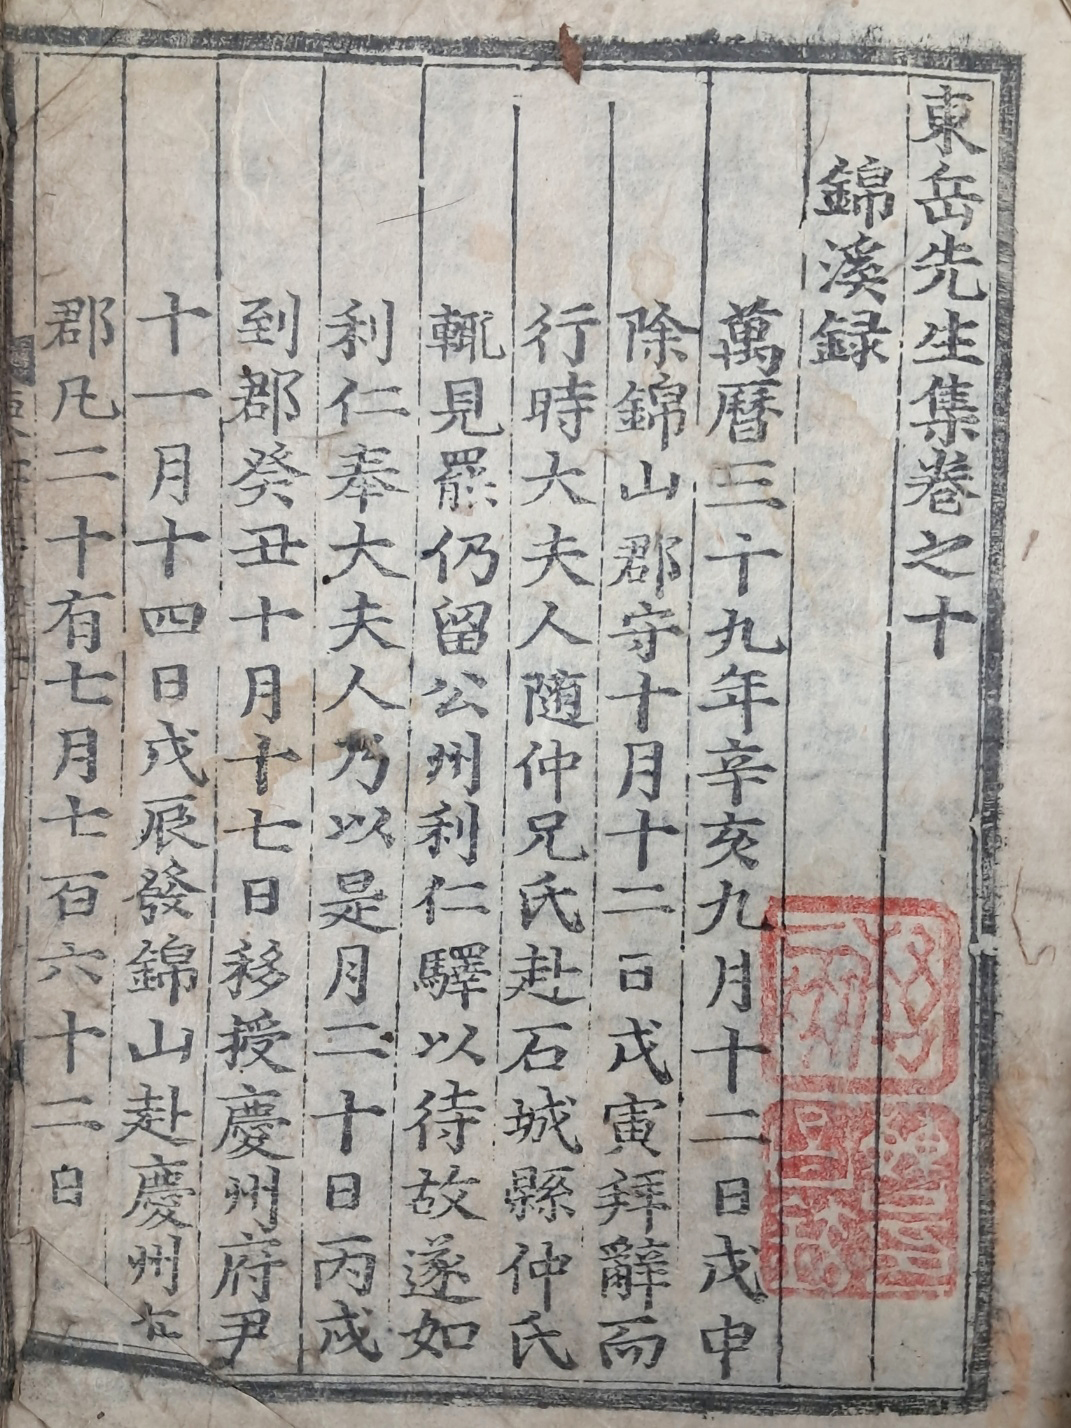 東岳先生集卷之十
錦溪録
萬曆三十九年辛亥九月十二日戊申
除錦山郡守十月十二日戊寅拜辭而
行時大夫人随仲兄氏赴石城縣仲氏
輒見罷仍留公州利仁驛以待故遂如
利仁奉大夫人乃以是月二十日丙戌
到郡癸丑十月十七日移授慶州府尹
十一月十四日戊辰發錦山赴慶州在
郡凡二十有七月七百六十二日